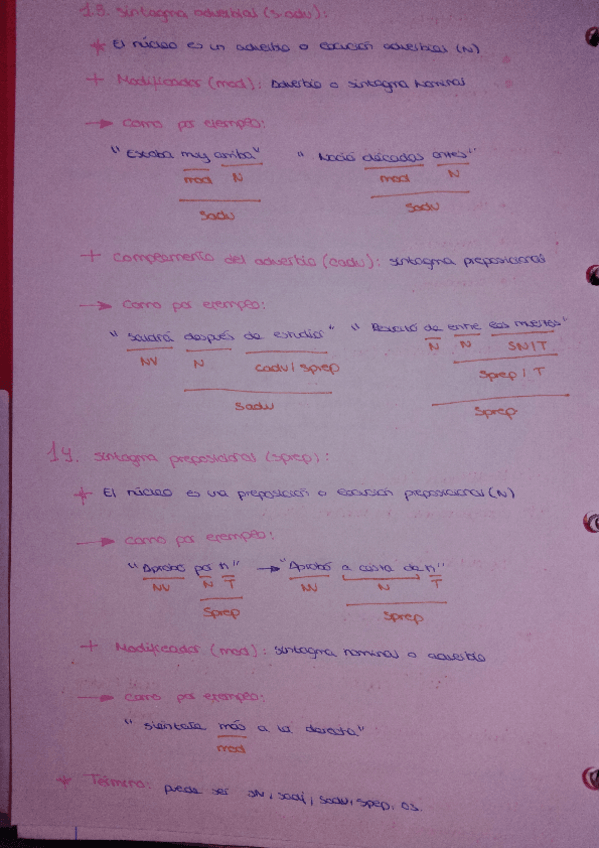 1.3. Sintagma adverbial (sadv):
* El núcleo es un adverbio o locución adverbial (N)
+ Modificador (mod): adverbio o sintagma nominal
→ Como por ejemplo:
"Estaba muy arriba" "Nació décadas antes"
mod N mod N
Sadv Sadv
+ Complemento del adverbio (cadv): sintagma preposicional
→ Como por ejemplo:
"Saldrá después de estudiar" " de entre los muertos"
NV N Cadv/Sprep N N SN/T
Sprep/T
Sadv Sprep
1.4. Sintagma preposicional (sprep):
* El núcleo es una preposición o locución preposicional (N)
→ Como por ejemplo:
"Aprobó por ti" → "Aprobó a costa de ti"
NV N T NV N T
Sprep Sprep
+ Modificador (mod): sintagma nominal o adverbio
→ Como por ejemplo:
"Siéntate más a la derecha"
mod
* Término: puede ser SN, sadj, sadv, sprep, os.